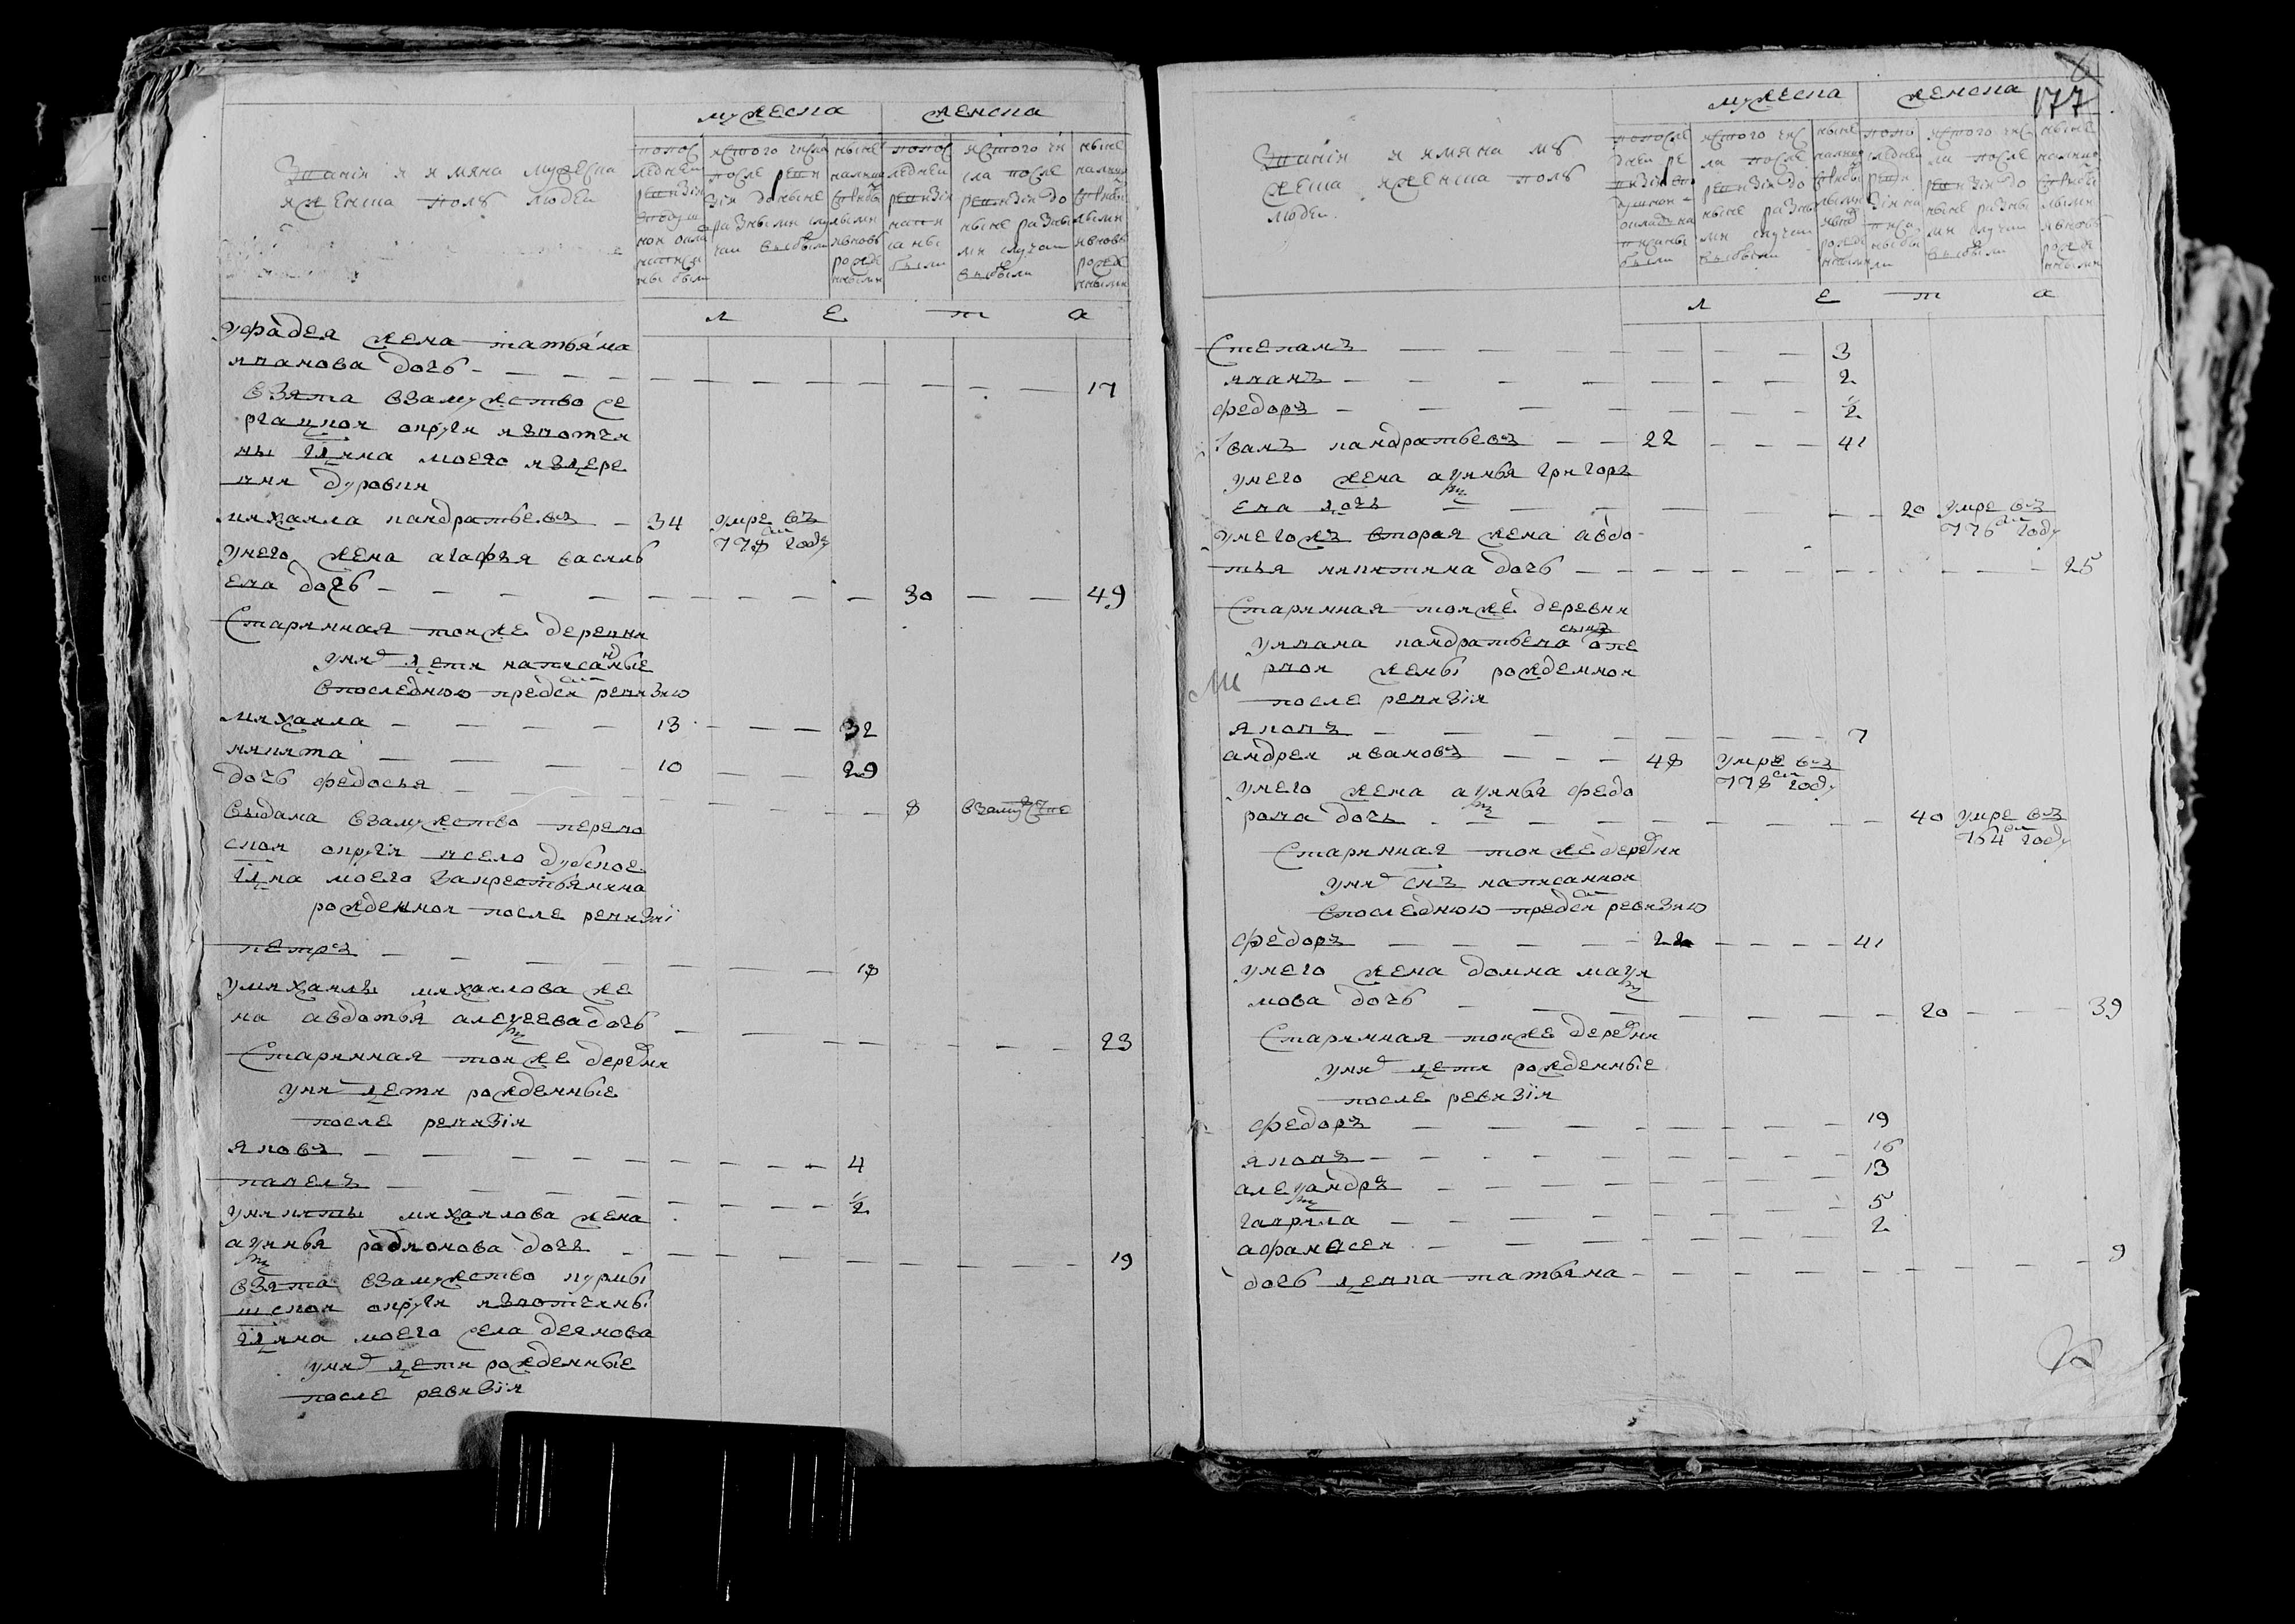 мужеска
женска
Звания и имяна мужеска
и женска полу людеи
попос
ледней
ревизіи
вподуш
ном окла
написа
ны были
истого числа
после реви
зіи доныне
разными слу
чаи выбыли
ныне
налицо
спри
былыми
ивновь
рожде
нными
попос
ледней
ревизіи
напи
саны
были
истого чи
сла после
ревизіи до
ныне разны
ми случаи
выбыли
ныне
налицо
лыми
ивновь
рожде
нными
л е т а
уфадея жена татьяна
иванова дочь 17
взята взамужство се
ргацкои округи извотчи
ны гдна моего издере
вни
михаила кандратьевъ 34 умре въ
778м году
унего жена агафья василь
ева дочь 30 49
Старинная тоиже деревни
унихъ дети написанные
впоследнюю предсию ревизию
михаила 13 32
никита 10 29
дочь федосья 8 взамужстве
выдана взамужство
скои округи всело дубское
гдна моего закрестьянина
рожденнои после ревизиі
петръ 18
умихаилы михаилова же
на авдотья алексеева дочь 23
Старинная тоиже деревни
унихъ дети рожденные
после ревизіи
яковъ 4
павелъ 1/2
уникиты михаилова жена
аксинья родионова дочь 19
взята взамужство курмы
шскои округи извотчины
гдна моего села деянова
унихъ дети рожденные
после ревизіи
177
мужеска
женска
Звания и имяна му
жеска иженска полу
людеи
попосле
дней ре
визіи впо
душном
окладе на
писаны
были
исто го чис
ла после
ревизіи до
ныне разны
ми случаи
выбыли
ныне
налицо
лыми
ивновь
рожде
нными
попо
следней
реви
зіи на
писа
ны бы
ли
исто го чис
ла после
ревизіи до
ныне разны
ми случаи
выбыли
ныне
налицо
лыми
ивновь
рожде
нными
л е т а
Степанъ 3
иванъ 2
федоръ 1/2
Иванъ кандратьевъ 22 41
унего жена аксинья григорь
ева дочь 20 умре въ
776м году
унегожъ вторая жена авдо
тья никитина дочь 25
Старинная тоиже деревни
уивана кандратьева сынъ отпе
рвои жены рожденнои
после ревизіи
яковъ 7
андреи ивановъ 48 умре въ
778м году
унего жена аксинья федо
рова дочь 40 умре въ
764м году
Старинная тоиже деревни
унихъ снъ написаннои
впоследнюю предсию ревизию
федоръ 22 41
унего жена домна макси
мова дочь 20 39
Старинная тоиже деревни
унихъ дети рожденные
после ревизіи
федоръ 19
яковъ 16
александръ 13
гаврила 5
афанасеи 2
дочь девка татьяна 9